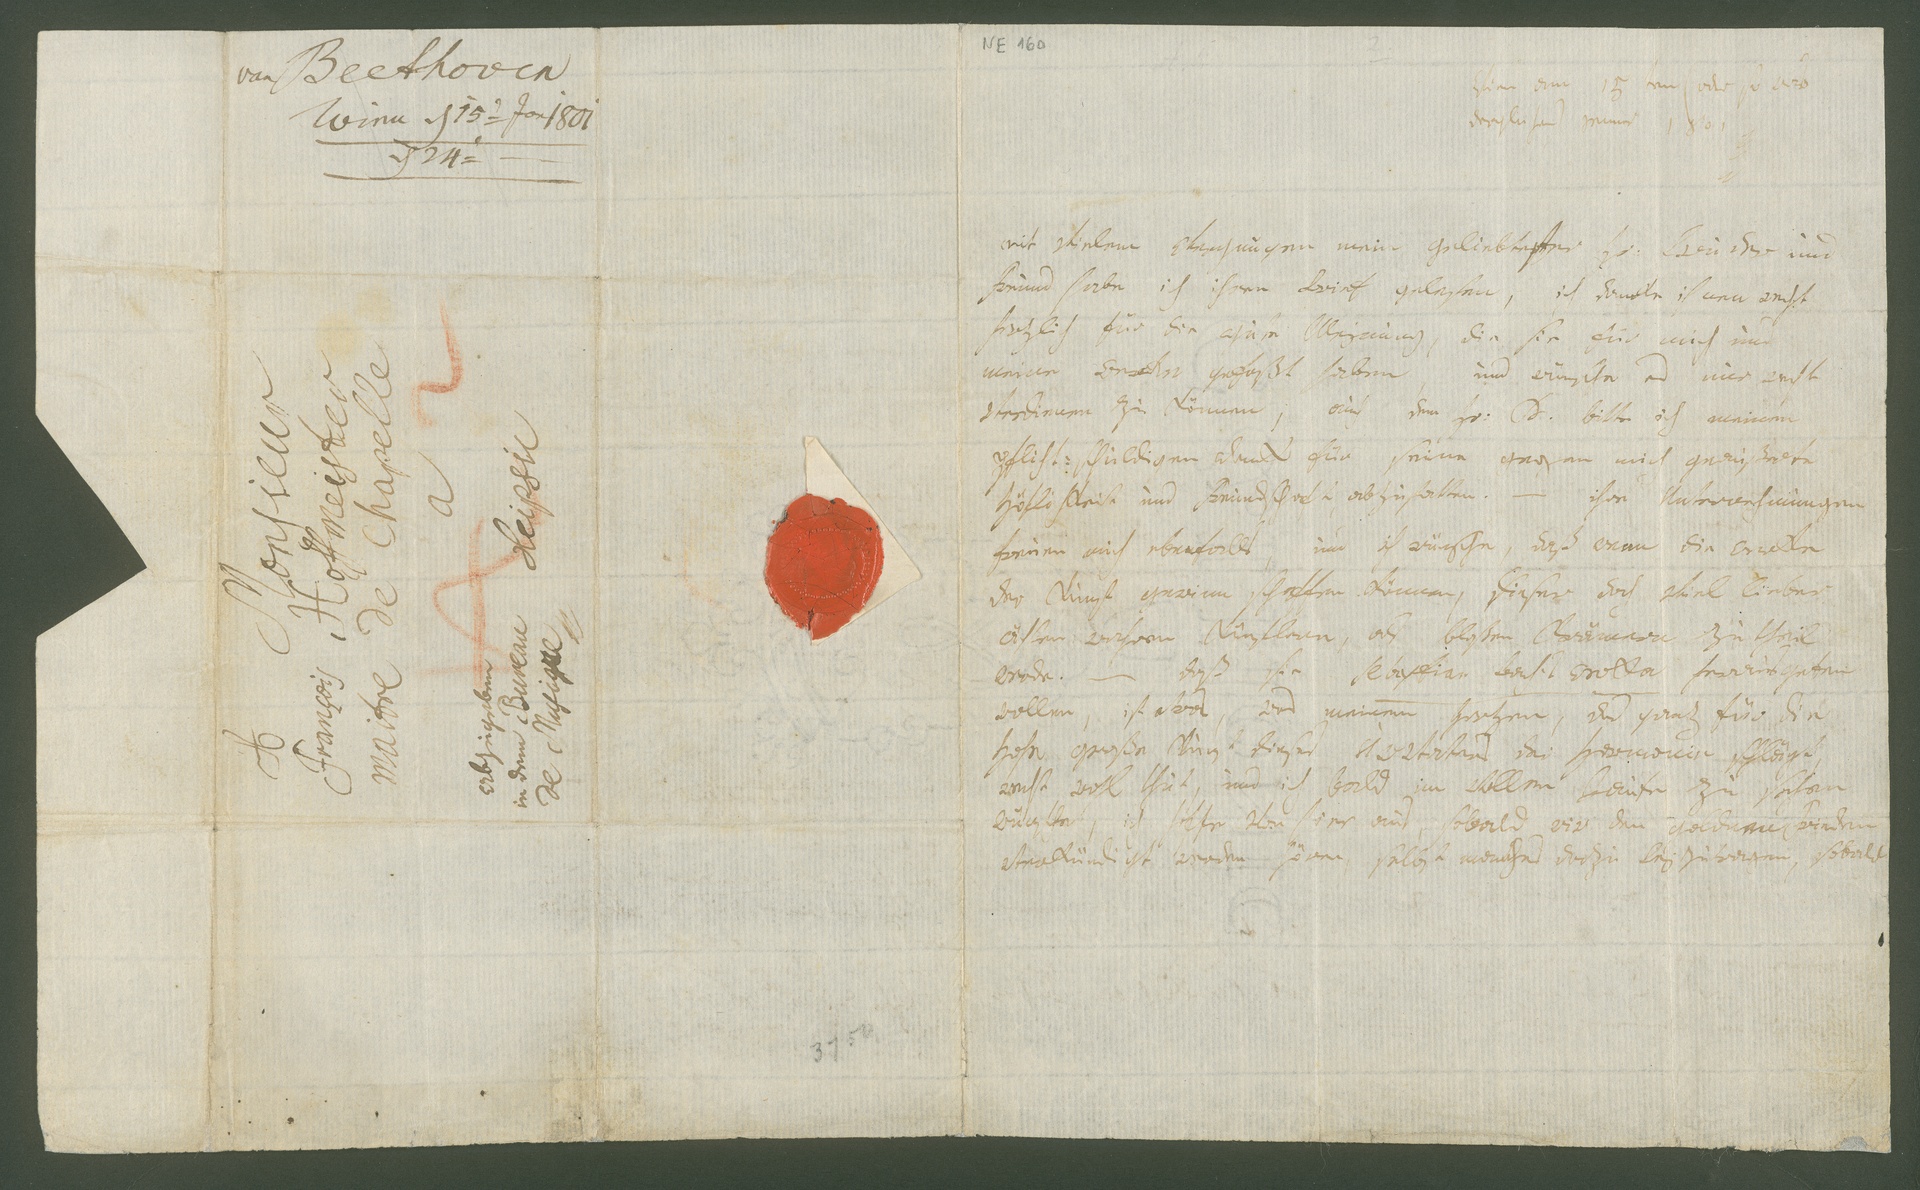 van Beethoven
Wien d 15t Jan 1801
d 24t
A Monsieur
François Hoffmeister
maitre de chapelle
a
Leipsic
abzugeben
in dem Bureau
de Musique
3750
NE 160
Wien am 15ten (oder so was
dergleichen) Jenner 1801
mit vielem Vergnügen mein geliebtester Hr: Bruder und
Freund habe ich ihren Brief gelesen, ich danke ihnen recht
herzlich für die gute Meinung, die sie für mich und
meine Werke gefaßt haben, und wünsche es mir recht
verdienen zu können, auch dem Hr: K. bitte ich meinen
pflicht: schuldigen Dank für seine gegen mich geäußerte
Höflichkeit und Freundschaft abzustatten. — ihre Unternehmungen
freuen mich ebenfalls, und ich wünsche, daß wenn die Werke
der Kunst gewinn schaffen können, dieser doch viel lieber
ächten wahren Künstlern, als bloßen Krämern zu theil
werde. — daß sie Sebastian Bach's Werke herausgeben
wollen, ist etwas, was meinem Herzen, das ganz für die
Hohe große Kunst dieses Urvaters der Harmonie schlägt,
recht wohl thut, und ich bald im vollem Laufe zu sehen
wünsche, ich hoffe von hier aus, sobald wir den goldnen Frieden
verkündigt werden hören, selbst manches dazu beyzutragen, sobald